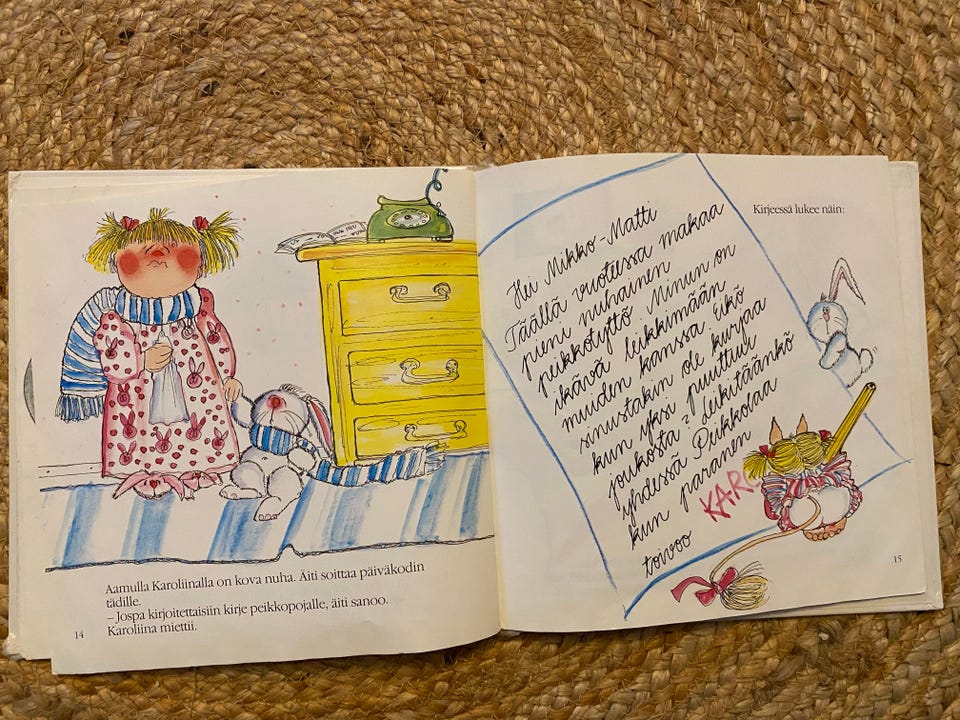 Aamulla Karoliinalla on kova nuha. Äiti soittaa päiväkodin
tädille.
– Jospa kirjoitettaisiin kirje peikkopojalle, äiti sanoo.
Karoliina miettii.
14
Kirjeessä lukee näin:
Hei Mikko-Matti
Täällä vuoteessa makaa
pieni nuhainen
peikkotyttö Minun on
ikävä leikkimään
muiden kanssa eikö
sinustakin ole kurjaa
kun yksi puuttuu
joukosta? Leikitäänkö
yhdessä Peikkolaa
kun paranen
toivoo
KARO
15